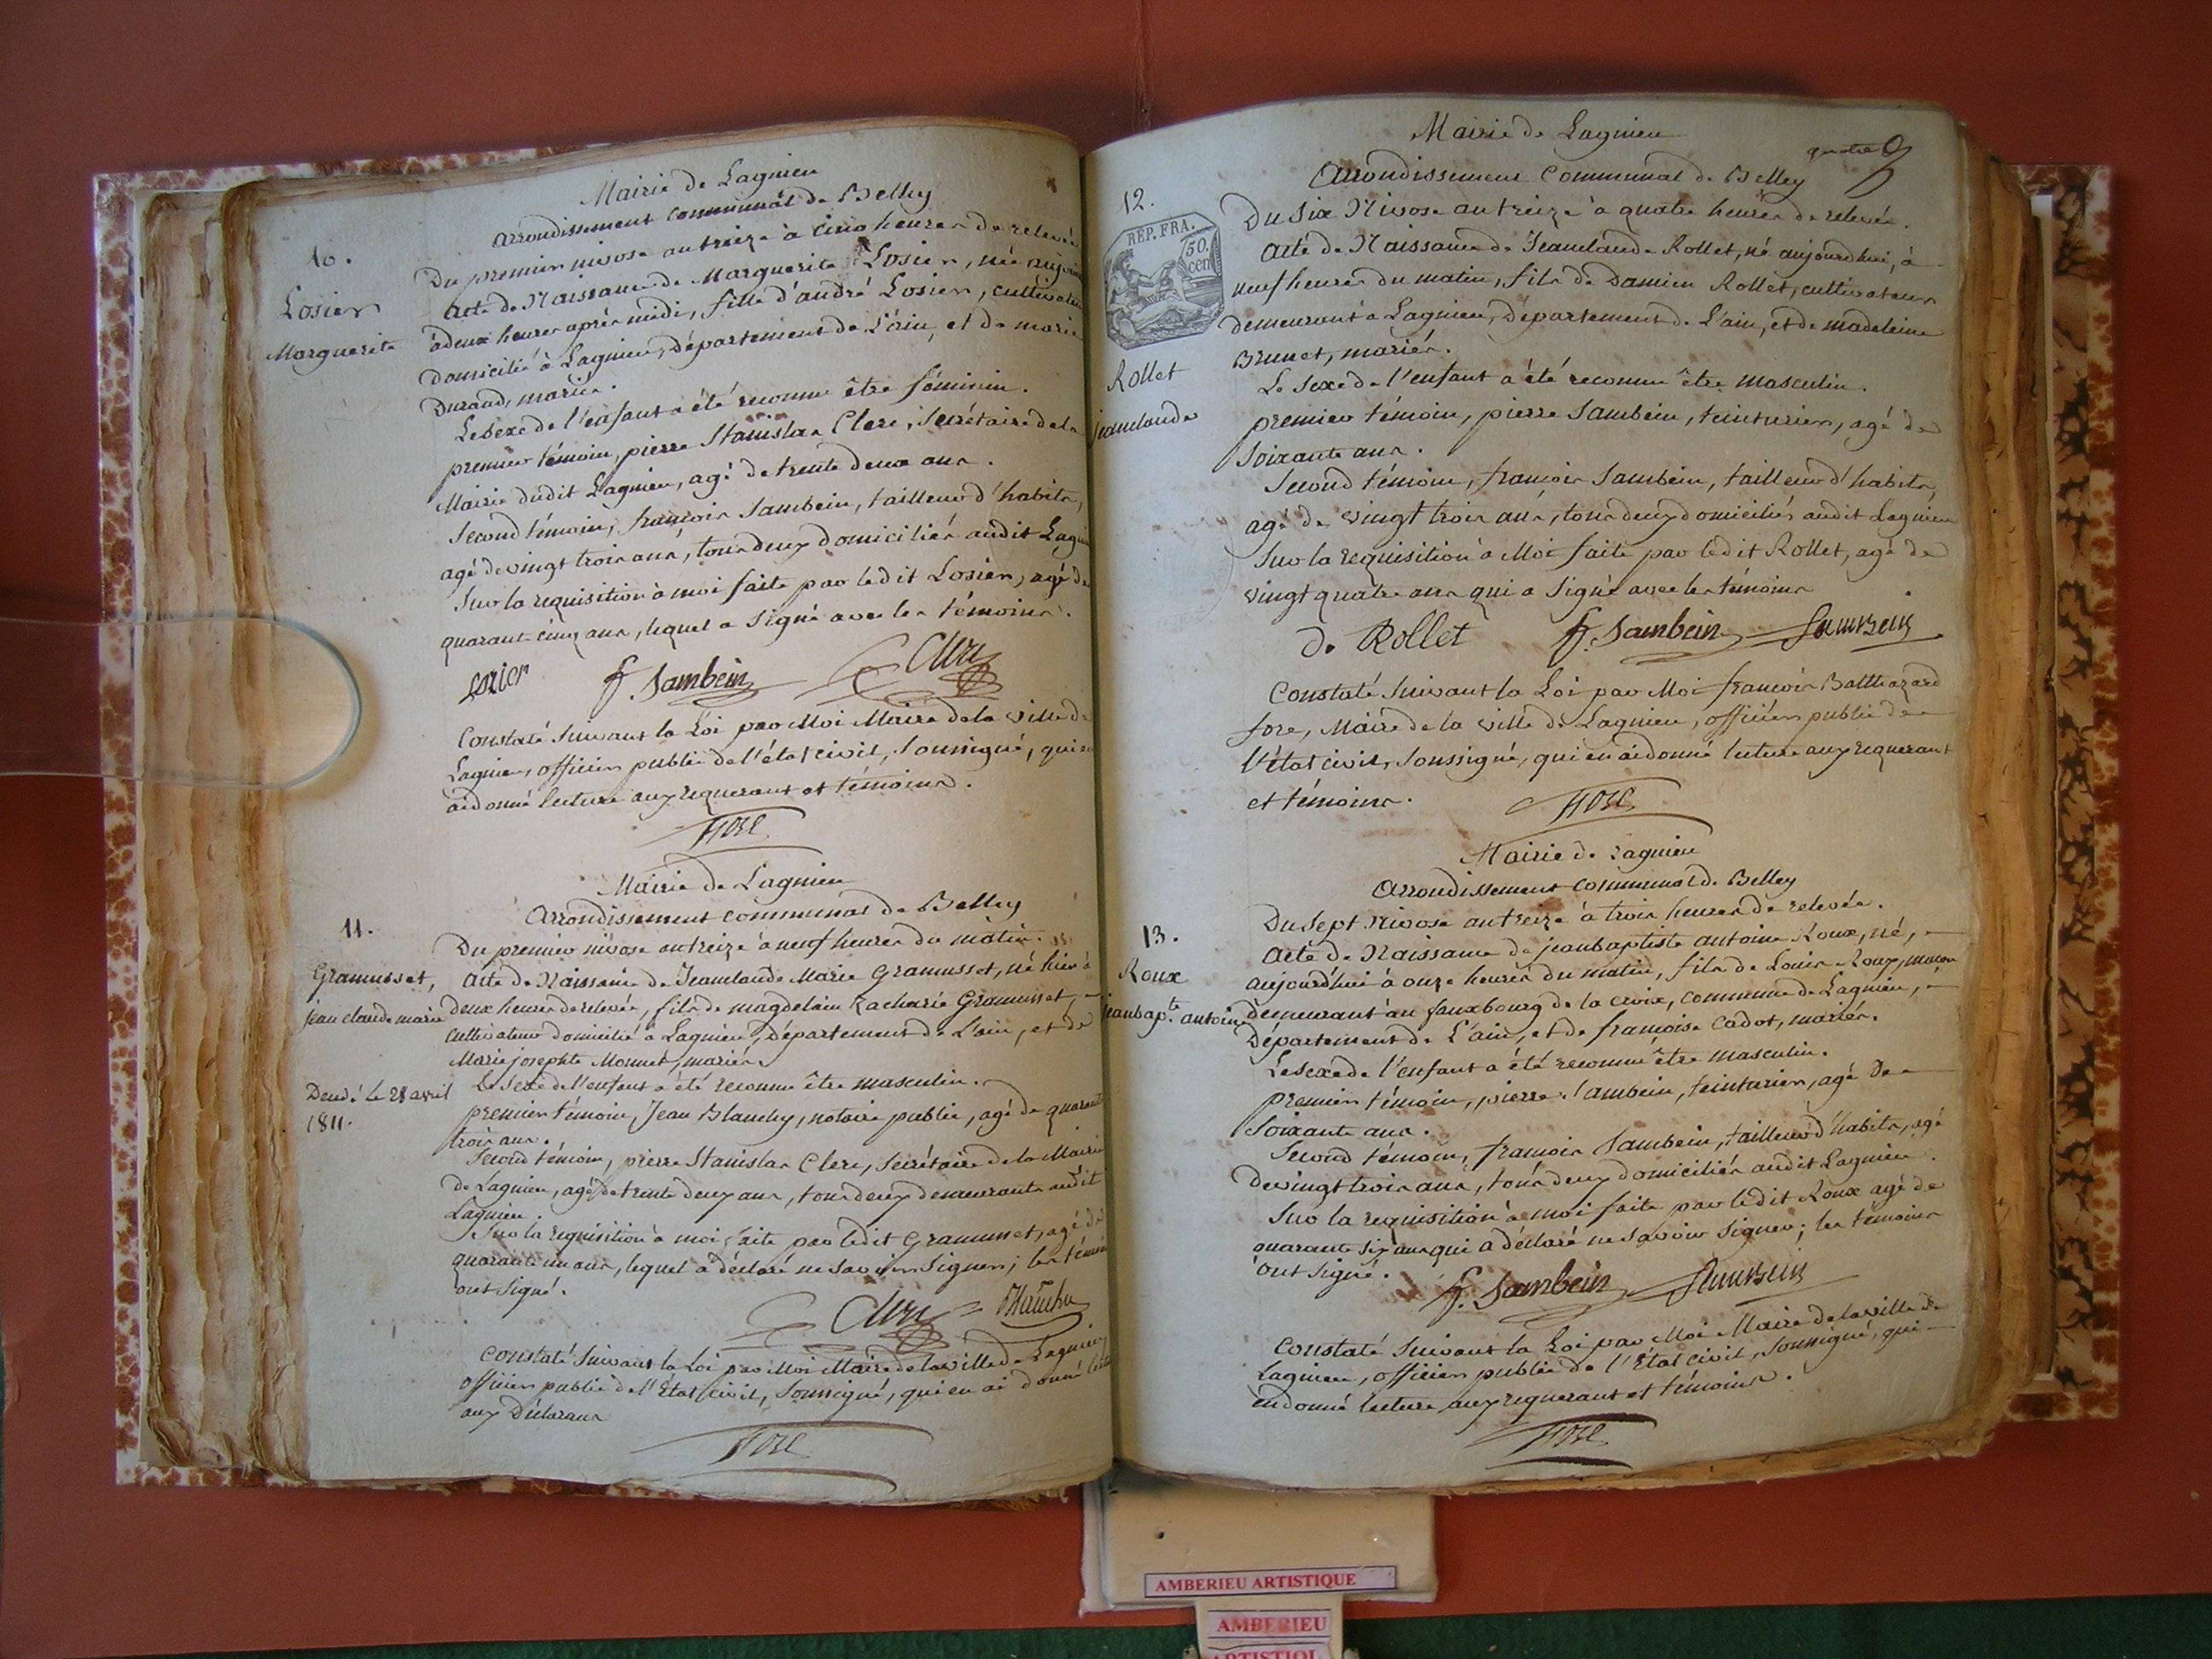 Mairie de Lagnieu
arrondissement communal de Belley
10.
Losier
Marguerite
Du premier nivose an treize à cinq heures de relevée
acte de Naissance de Marguerite Losier, née aujour
à deux heures après midi, fille d'andré Losier, cultivateur
domicilié à Lagnieu, département de L'ain, et de marie
Durand, mariés.
Le sexe de l'enfant a été reconnu être féminin.
premier témoin, pierre Stanislas Clerc, Secrétaire de la
Mairie dudit Lagnieu, agé de trente deux ans.
Second témoin, françois Sambein, tailleur d'habits,
agé de vingt trois ans, tous deux domiciliés audit Lagnieu
Sur la requisition à moi faite par ledit Losier, agé de
quarante cinq ans, lequel a Signé avec les témoins.
Lozier f. Sambein Clerc
Constaté Suivant la Loi par Moi Maire de la ville de
Lagnieu, officier public de l'état civil, Soussigné, qui en
ai donné lecture aux requerant et témoins.
fore
Mairie de Lagnieu
arrondissement communal de Belley
11.
Gramusset,
jean claude marie
Décédé le 28 avril
1811.
Du premier nivose an treize à neuf heures du matin.
acte de Naissance de Jeanclaude Marie Gramusset, né hier à
deux heures de relevée, fils de magdelain Zacharie Gramusset,
cultivateur domicilié à Lagnieu, département de L'ain, et de
Marie josephte Monnet, mariés.
Le Sexe de l'enfant a été reconnu être masculin.
premier témoin, Jean Blanchy, notaire public, agé de quarante
trois ans.
Second témoin, pierre Stanislas Clerc, Secrétaire de la Mairie
de Lagnieu, agé de trente deux ans, tous deux demeurants audit
Lagnieu.
Sur la requisition à moi faite par ledit Gramusset, agé de
quarante un ans, lequel a déclaré ne Savoir Signer; les témoins
ont Signé.
Clerc Blanchy
Constaté Suivant la Loi par Moi Maire de la ville de Lagnieu
officier public de l'Etat civil, Soussigné, qui en ai donné lecture
aux Déclarans
fore
Mairie de Lagnieu
quatre
Arrondissement Communal de Belley
12.
REP. FRA.
50.
cen
Rollet
jeanclaude
Du Six Nivose an treize à quatre heures de relevée.
acte de Naissance de Jeanclaude Rollet, né aujourdhui, à
neuf heures du matin, fils de Damien Rollet, cultivateur
demeurant à Lagnieu, département de L'ain, et de madeleine
Brunet, mariés.
Le Sexe de l'enfant a été reconnu être masculin.
premier témoin, pierre Sambein, teinturier, agé de
Soixante ans.
Second témoin, françois Sambein, tailleur d'habits,
agé de vingt trois ans, tous deux domiciliés audit Lagnieu
Sur la requisition à Moi faite par ledit Rollet, agé de
vingt quatre ans qui a Signé avec les témoins
d. Rollet f. Sambein Sambein
Constaté Suivant la Loi par Moi françois Balthazard
fore, Maire de la ville de Lagnieu, officier public de
l'état civil, Soussigné, qui en ai donné lecture aux requerant
et témoins.
fore
Mairie de Lagnieu
arrondissement communal de Belley
13.
Roux
jeanbapte. antoine
Du Sept Nivose an treize à trois heures de relevée.
acte de Naissance de jeanbaptiste antoine Roux, né,
aujourd'hui à onze heures du matin, fils de Louis Roux, maçon
demeurant au fauxbourg de la croix, commune de Lagnieu,
Département de L'ain, et de françoise Cadot, mariés.
Le sexe de l'enfant a été reconnu être masculin.
premier témoin, pierre Sambein, teinturier, agé de
Soixante ans.
Second témoin, françois Sambein, tailleur d'habits, agé
de vingt trois ans, tous deux domiciliés audit Lagnieu.
Sur la requisition à moi faite par ledit Roux agé de
quarante six ans qui a déclaré ne Savoir Signer; les témoins
ont Signé.
f. Sambein Sambein
Constaté Suivant la Loi par Moi Maire de la ville de
Lagnieu, officier public de l'Etat civil, Soussigné, qui
en donné lecture aux requerant et témoins.
fore
AMBERIEU ARTISTIQUE
AMBERIEU